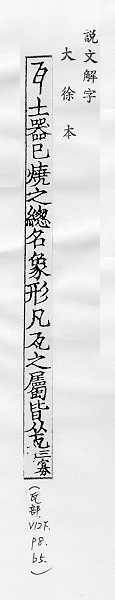 說文解字
大徐本
瓦土器已燒之總名象形凡瓦之屬皆从瓦五寡
(瓦部.
V12下.
p8.
b5.)